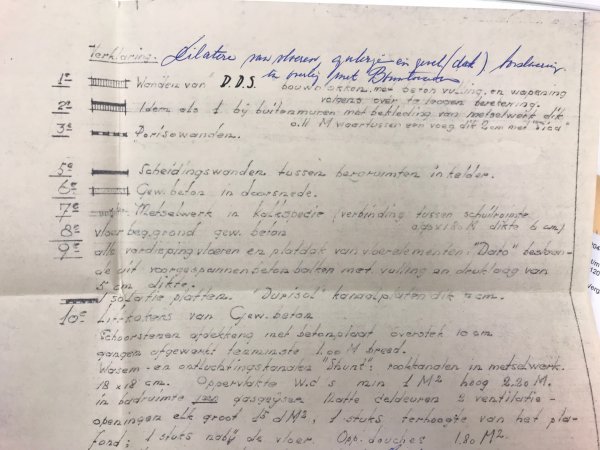 Verklaring. Dilatere van vloeren, galerijen en gevel (dak)
te overleg met
1e Wanden van D.D.S. bouwblokken met beton vulling en wapening
volgens over te leggen berekening.
2e Idem als 1 bij buitenmuren met bekleding van metselwerk dik
o.11 M waartussen een voeg dik 2cm met
3e Porisowanden.
5e Scheidingswanden tussen bergruimten in kelder.
6e Gew. beton in doorsnede.
7e Metselwerk in kalkspecie (verbinding tussen schuilruimte
8e vloer beg. grond gew. beton dikte cm)
9e alle verdieping vloeren en platdak van vloerelementen "Dato" bestaan-
de uit voorgespannen beton balken met vulling en druk laag van
5 cm dikte.
Isolatie platten. "Durisol" kanaalplaten dik 7 cm.
10e Liftkokers van Gew. beton
Schoorstenen afdekking met betonplaat overstek 10 cm
gangen afgewerkt tenminste 1.00 M breed.
Wasem- en ontluchtingskanalen "Shunt": rookkanalen in metselwerk.
18 x 18 cm. Oppervlakte W.C.'s min 1 M2 hoog 2.20 M.
in badruimte gasgeyser 2 ventilatie-
openingen elk groot 1.5 dM2, 1 stuks terhoogte van het pla-
fond; 1 stuks nabij de vloer. Opp. douches 1.80 M2